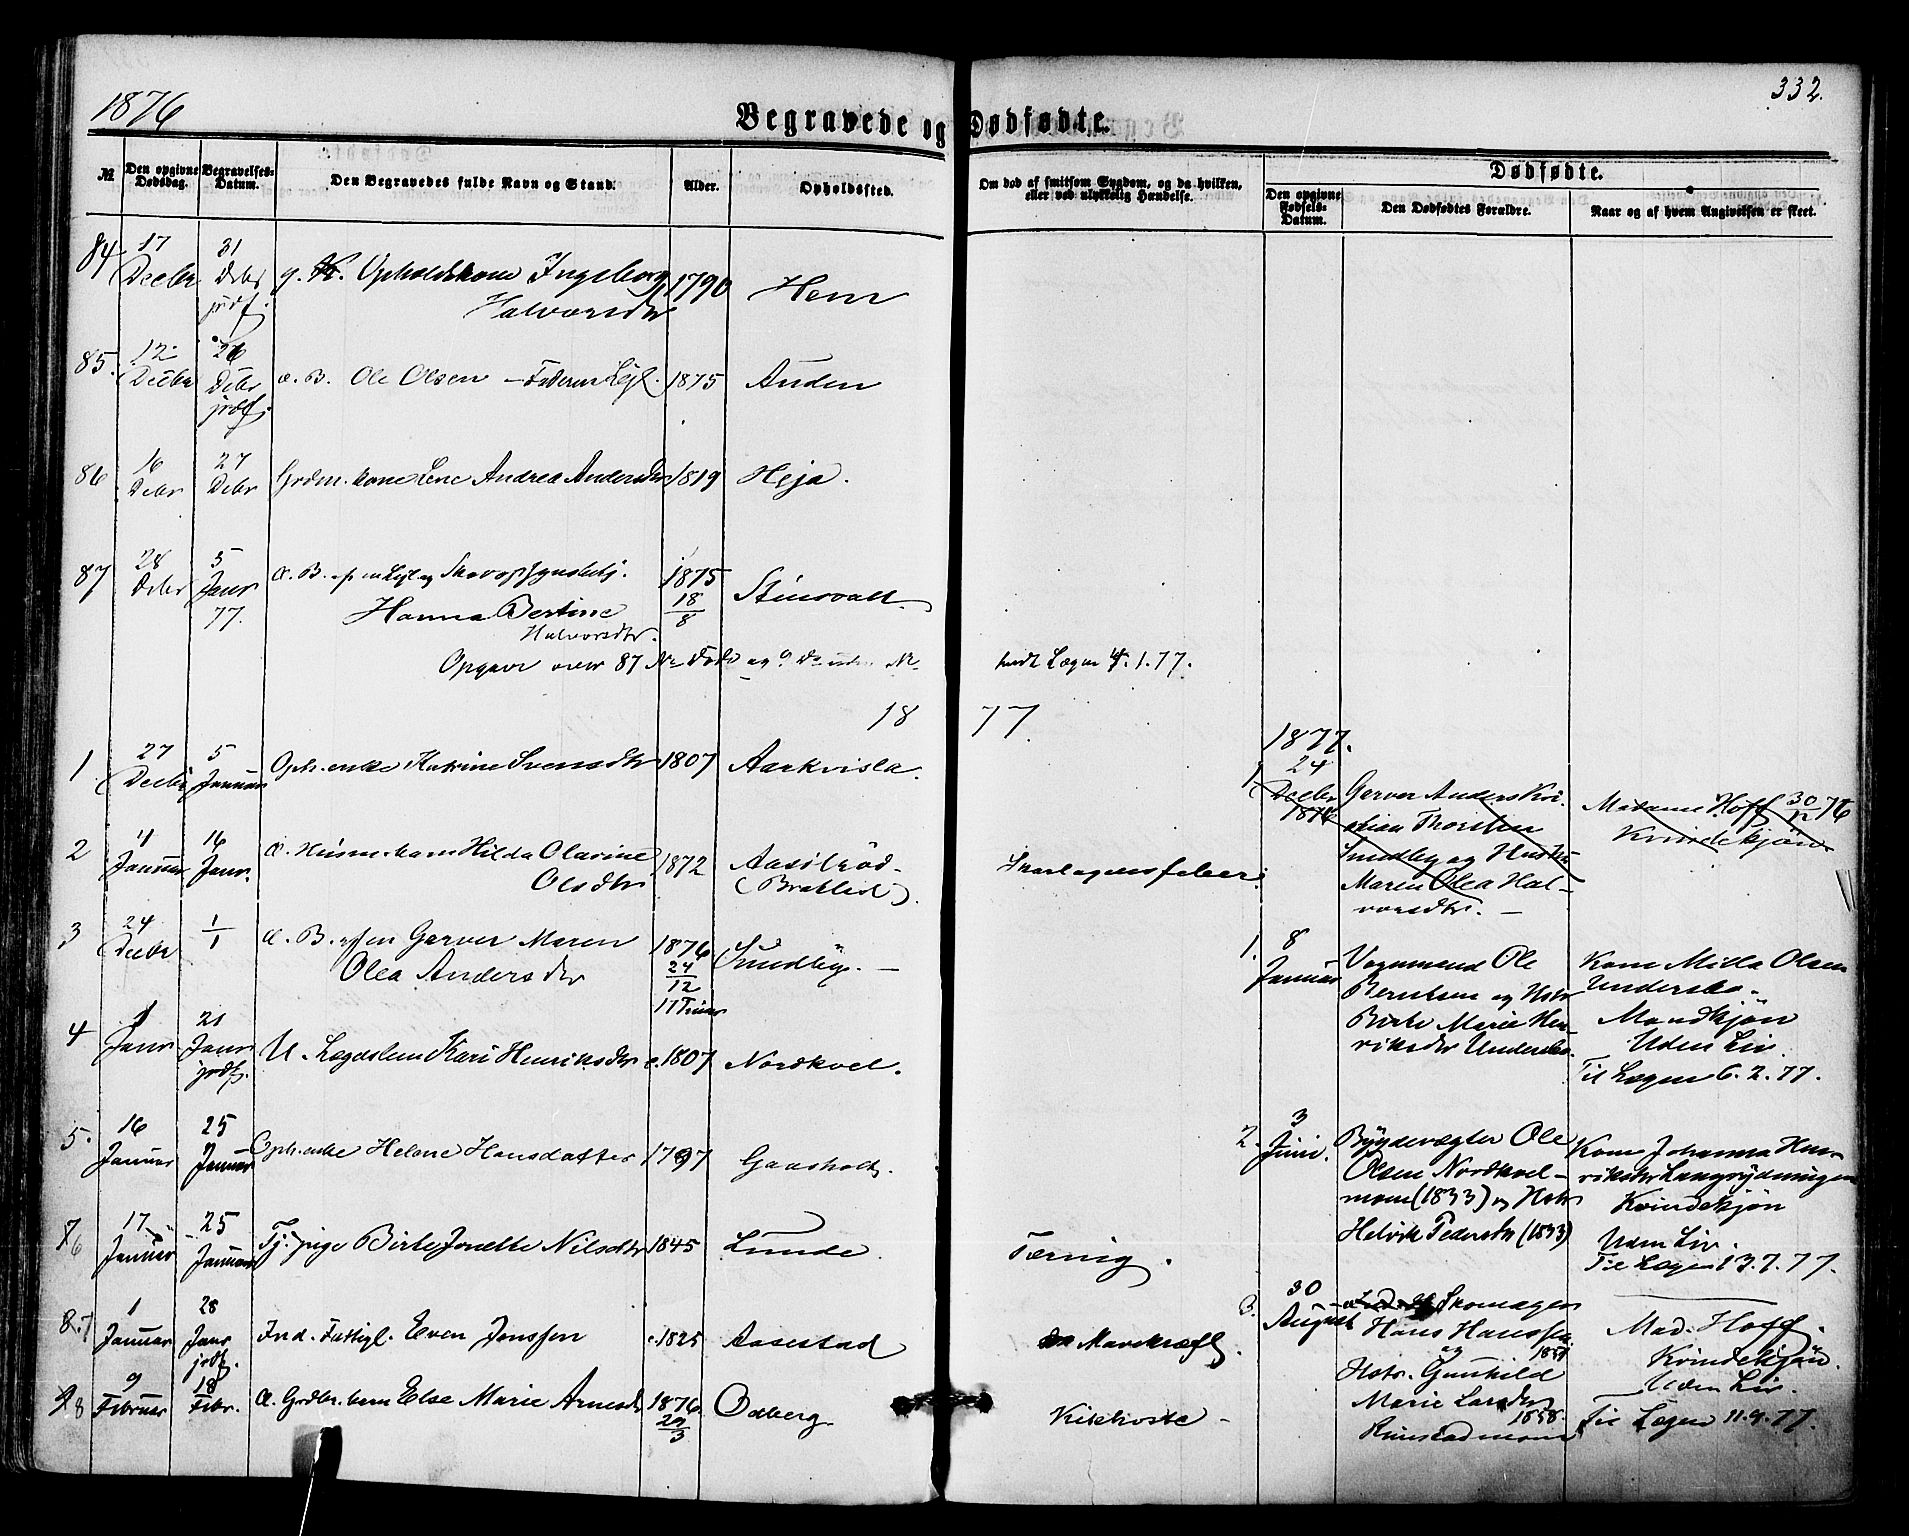 1876
332.
Begravede og Dødfødte.
№
Den opgivne Dødsdag.
Begravelses-Datum.
Den Begravedes fulde Navn og Stand.
Alder.
Opholdssted.
Om død af smitsom Sygdom, og da hvilken, eller ved ulykkelig Hændelse.
Dødfødte.
Den opgivne Fødsels-Datum.
Den Dødfødtes Forældre.
Naar og af hvem Angivelsen er skeet.
84 17 Decbr 31 Debr jrdf. g. Opholdskone Ingeborg Halvorsdtr 1790 Hem
85. 12 Decbr 26 Debr jrdf. æ. B. Ole Olsen 1875 Anden
86 16 Debr 27 Debr Grdm. kone Lene Andrea Andersdtr 1819 Heja.
87 28 Debr 5 Janr 77. æ. B. Hanna Bertine Halvorsdtr. 1875 18/8
Opgave over 87
Lægen 4.1.77.
18 77.
1. 27 Decbr 5 Januar Oph. enke Katrine Svensdtr 1807 Aarkvisla.
2 4 Januar 16 Janr. æ. Husm. barn Hilda Olavine Olsdtr 1872 Aasilrød (Bratlid). Skarlagensfeber.
3 24 Decbr 1/1 æ. B. af en Garver Maren Olea Andersdtr 1876 24/12 11 Timer Sundby. —
4 1 Janr 21 Janr jrdf. U. Lægdslem Kari Henriksdtr c. 1807 Nordkvel.
5. 16 Januar 25 Januar Oph. enke Helene Hansdatter 1797 Gaasholt.
6 17 Januar 25 Januar Tj. pige Birte Jonette Nilsdtr 1845 Lunde. Tæring.
7 1 Januar 28 Janr jrdf. Ind. Fattigl. Even Jonssen c. 1825 Aasestad Mavekræft.
8 9 Februar 18 Febr. æ. Grdbr. barn Else Marie Arnesdtr 1876 29/3 Odberg Kikhoste —
1877.
1 24 Decbr 1876 Garver Anders Kristian Thorsten Sundby og Hustru Maren Olea Halvorsdtr. — Madame Hoff 30/12 76 Kvindekjøn
1. 8 Januar Vognmand Ole Berntsen og Hstr Birte Marie Henriksdtr Undersbo. Kone Milla Olsen Undersbo. Mandkjøn Uden Liv. Til Lægen 6.2.77.
2. 3 Juni. Bygdevægter Ole Olsen Nordkvelmoen (1833) og Hstr Helvik Pedersdtr (1833) Kone Johanna Henriksdtr Langrydningen Kvindekjøn Uden Liv. Til Lægen 13.7.77.
3. 30 August Skomager Hans Hanssen og Hstr. Gunhild Marie Larsdtr 1858. Rimstadmoen Mad. Hoff. Kvindekjøn. Uden Liv. Til Lægen 11.9.77.